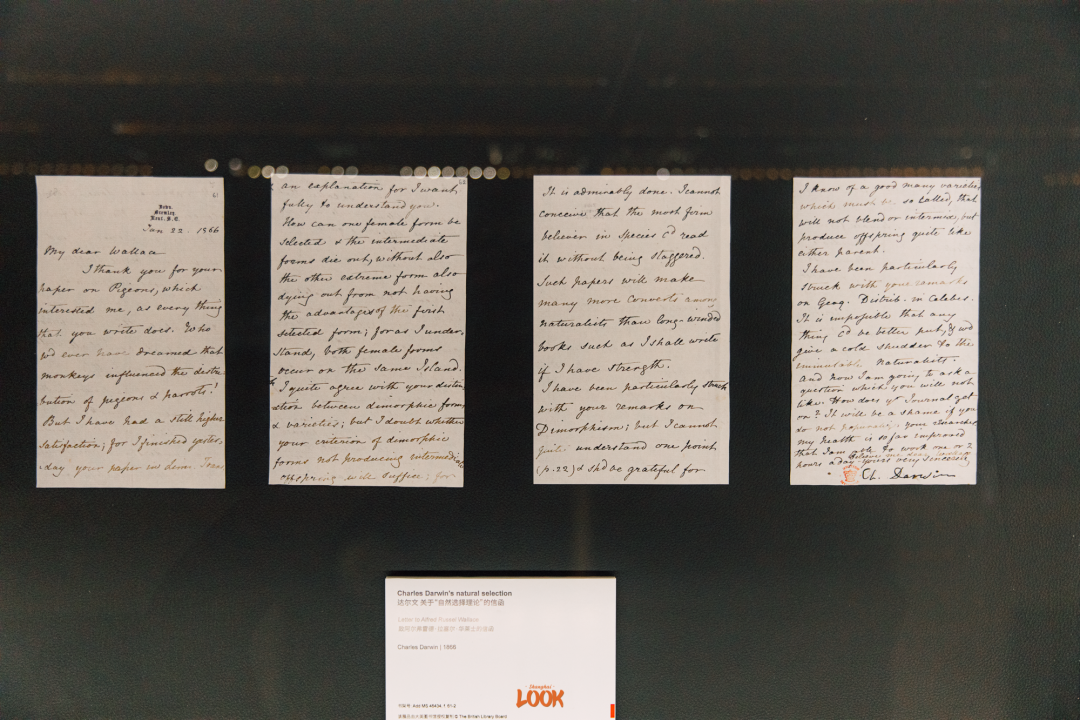 Down.
Bromley.
Kent. S.E.
Jan 22. 1866
My dear Wallace
I thank you for your
paper on Pigeons, which
interested me, as every thing
that you write does. Who
wd ever have dreamed that
monkeys influenced the distri
bution of pigeons & parrots!
But I have had a still higher
satisfaction; for I finished yester-
day your paper in Linn. Trans
It is admirably done. I cannot
conceive that the most firm
believer in Species cd read
it without being staggered.
Such papers will make
many more converts among
naturalists than long-winded
books such as I shall write
if I have strength.
I have been particularly struck
with your remarks on
Dimorphism; but I cannot
quite understand one point
(p. 22) & shd be grateful for
an explanation for I want
fully to understand you.
How can one female form be
selected & the intermediate
forms die out, without also
the other extreme form also
dying out from not having
the advantages of the first
selected form; for as I under-
stand, both female forms
occur on the same Island.
I quite agree with your distin
ction between dimorphic forms
& varieties; but I doubt whether
your criterion of dimorphic
forms not producing intermediate
offspring will suffice; for
I know of a good many varieties
which must be so called, that
will not blend or intermix, but
produce offspring quite like
either parent.
I have been particularly
struck with your remarks
on Geog. Distrib. in Celebes.
It is impossible that any
thing cd be better put, & wd
give a cold shudder to the
immutable naturalists.
And now I am going to ask a
question which you will not
like. How does yr Journal get
on? It will be a shame if you
do not popularise your researches
My health is so far improved
that I am able to work one or 2
hours a day
Believe me dear Wallace
yours very sincerely
Ch. Darwin
Charles Darwin's natural selection
达尔文 关于“自然选择理论”的信函
Letter to Alfred Russel Wallace
Charles Darwin | 1866
Shanghai
LOOK
Add MS 46434, f. 61-2
© The British Library Board